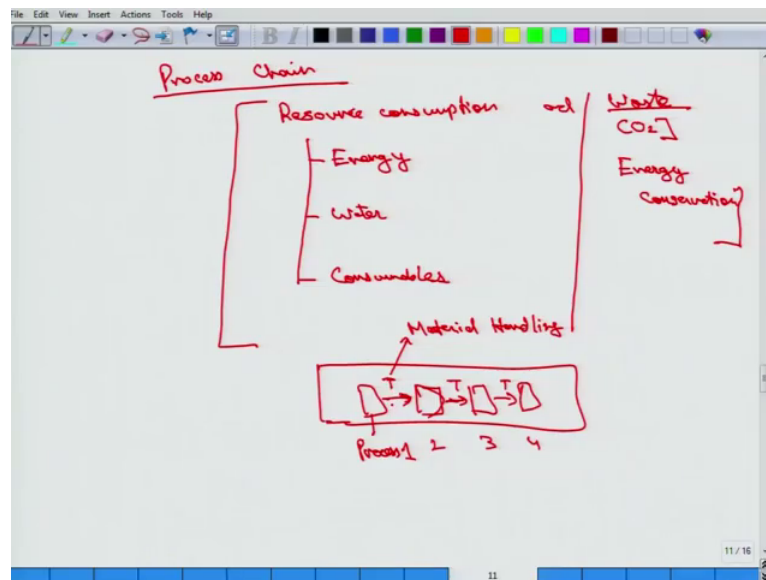 File Edit View Insert Actions Tools Help
B I
Process Chain
Resource consumption ad
Energy
Water
Consumables
Waste
CO2]
Energy
Conservation
Material Handling
T T T
Process1 2 3 4
11 / 16
11